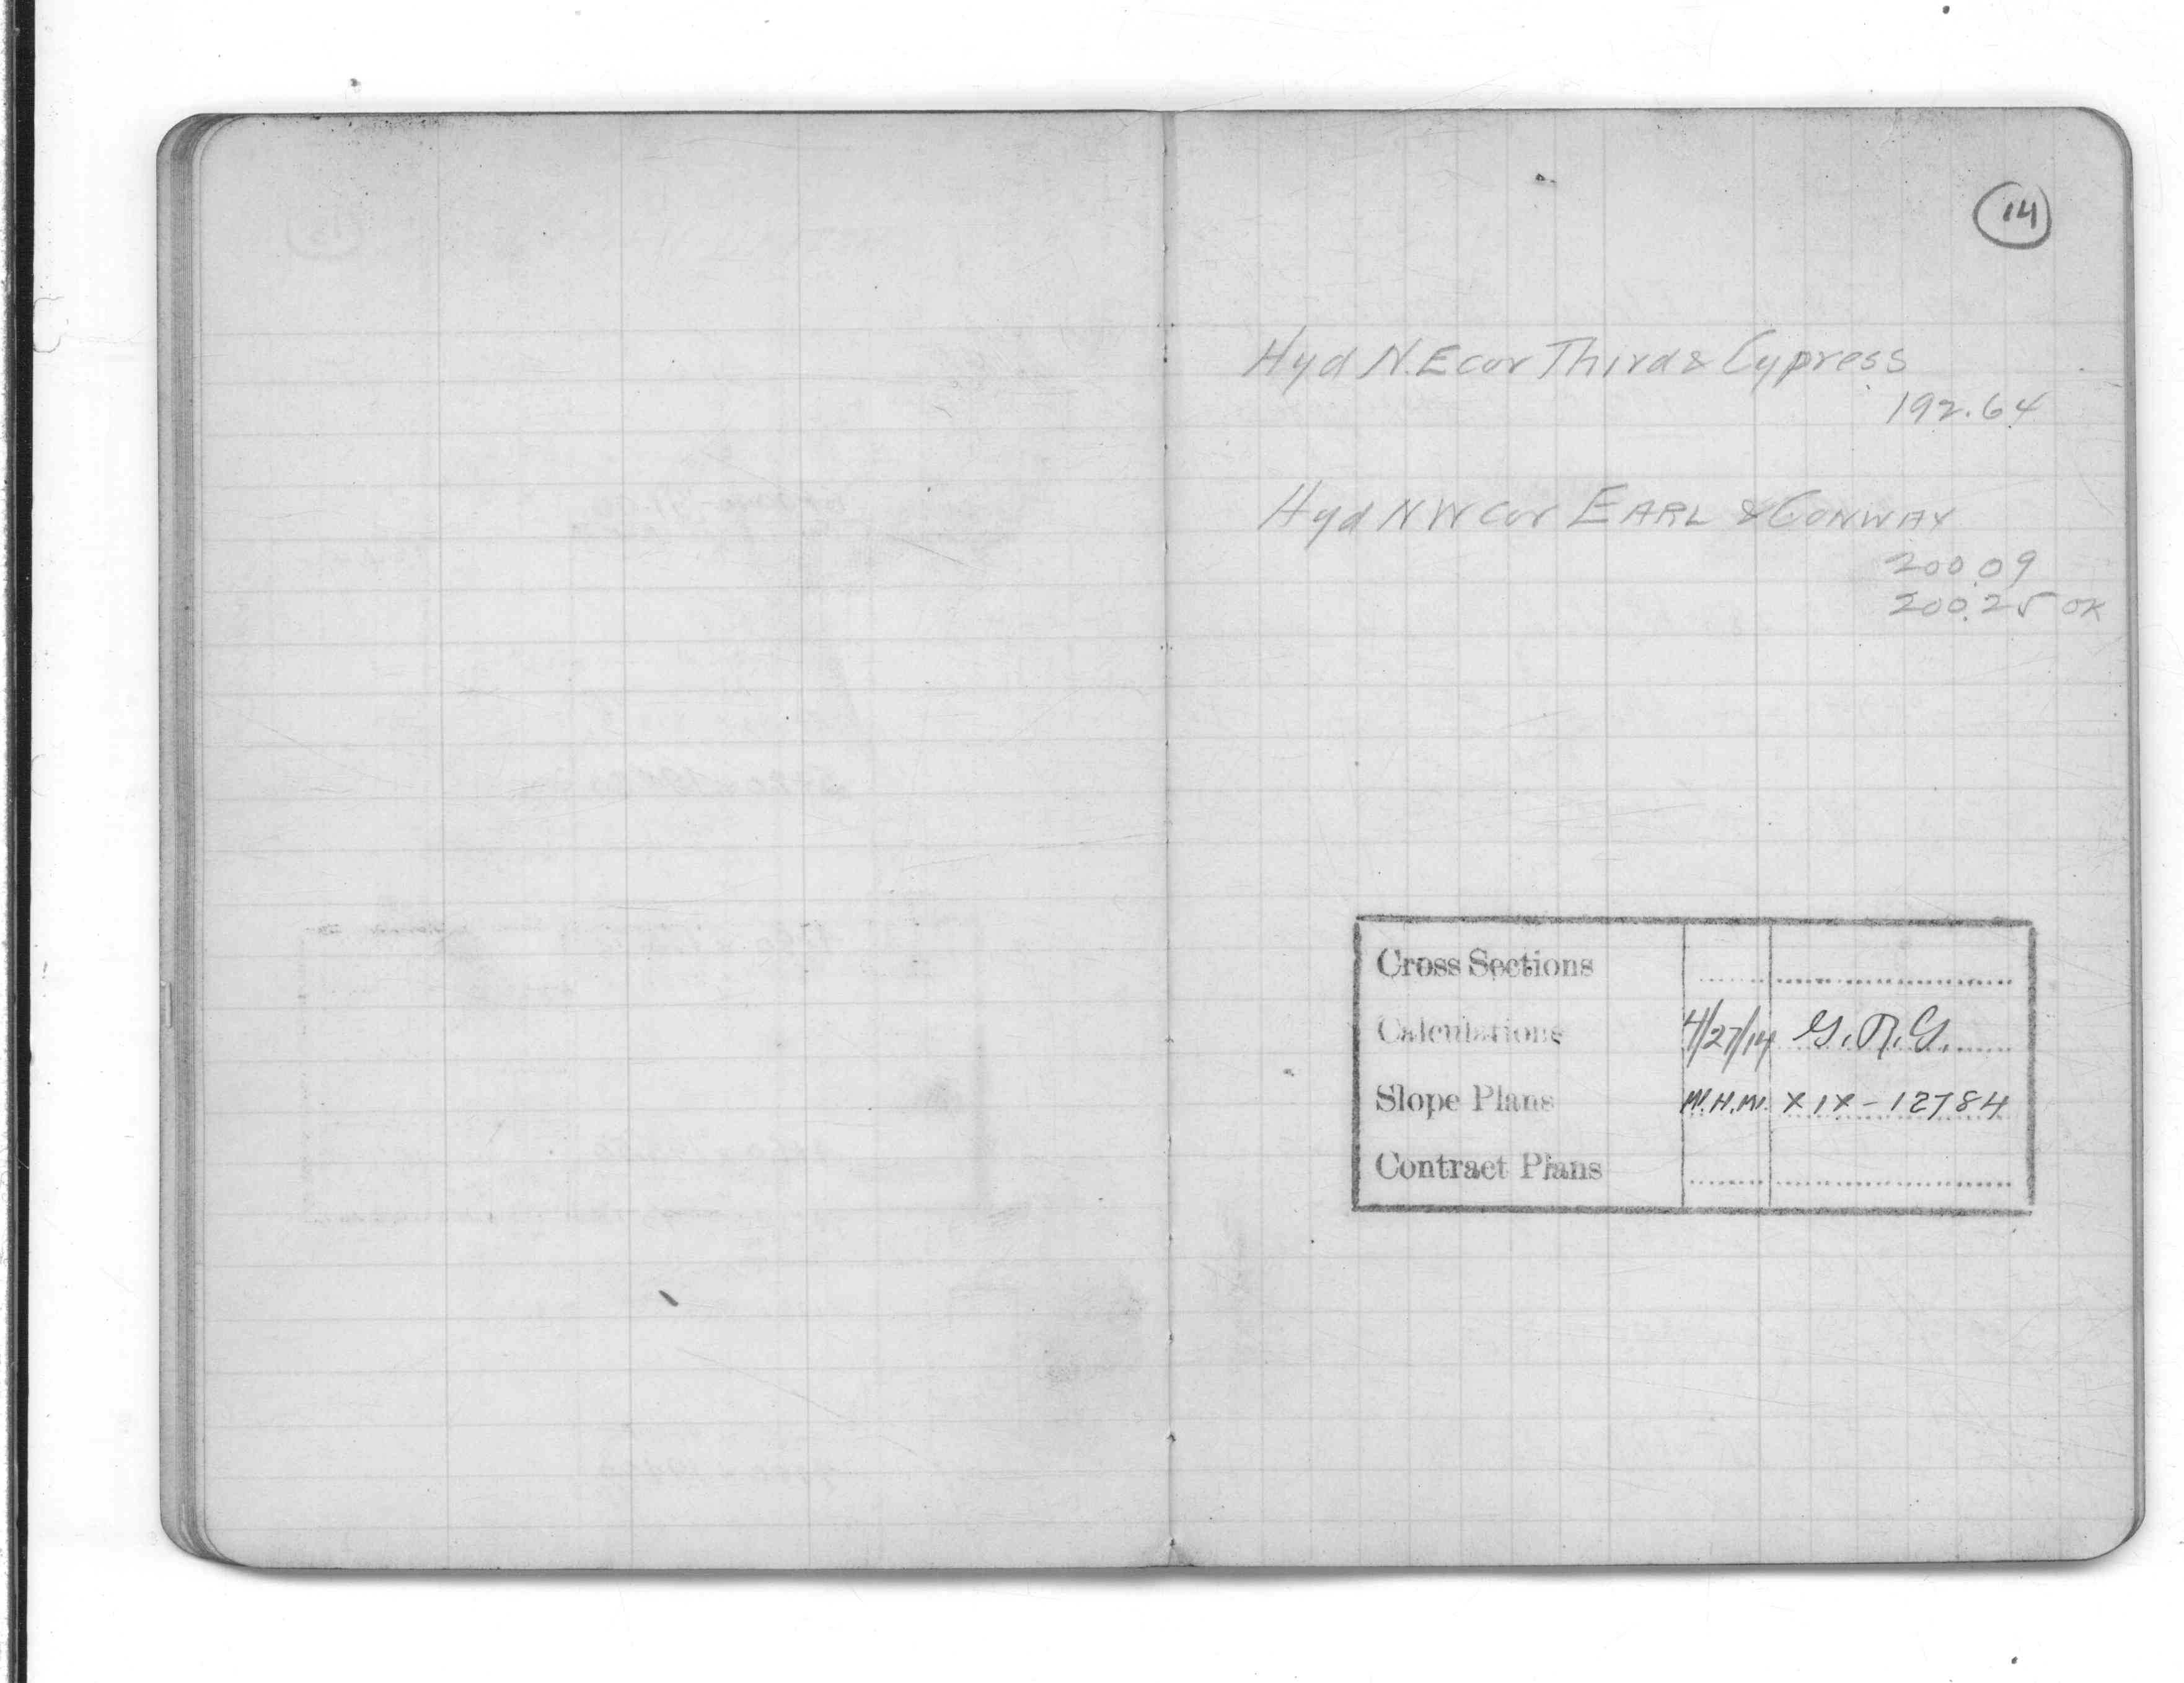 14
Hyd N.E cor Third & Cypress
192.64
Hyd N W Cor EARL & CONWAY
200.09
200.25 OK
Cross Sections
Calculations 4/27/14 G.R.G.
Slope Plans W.H.M. XIX-12784
Contract Plans